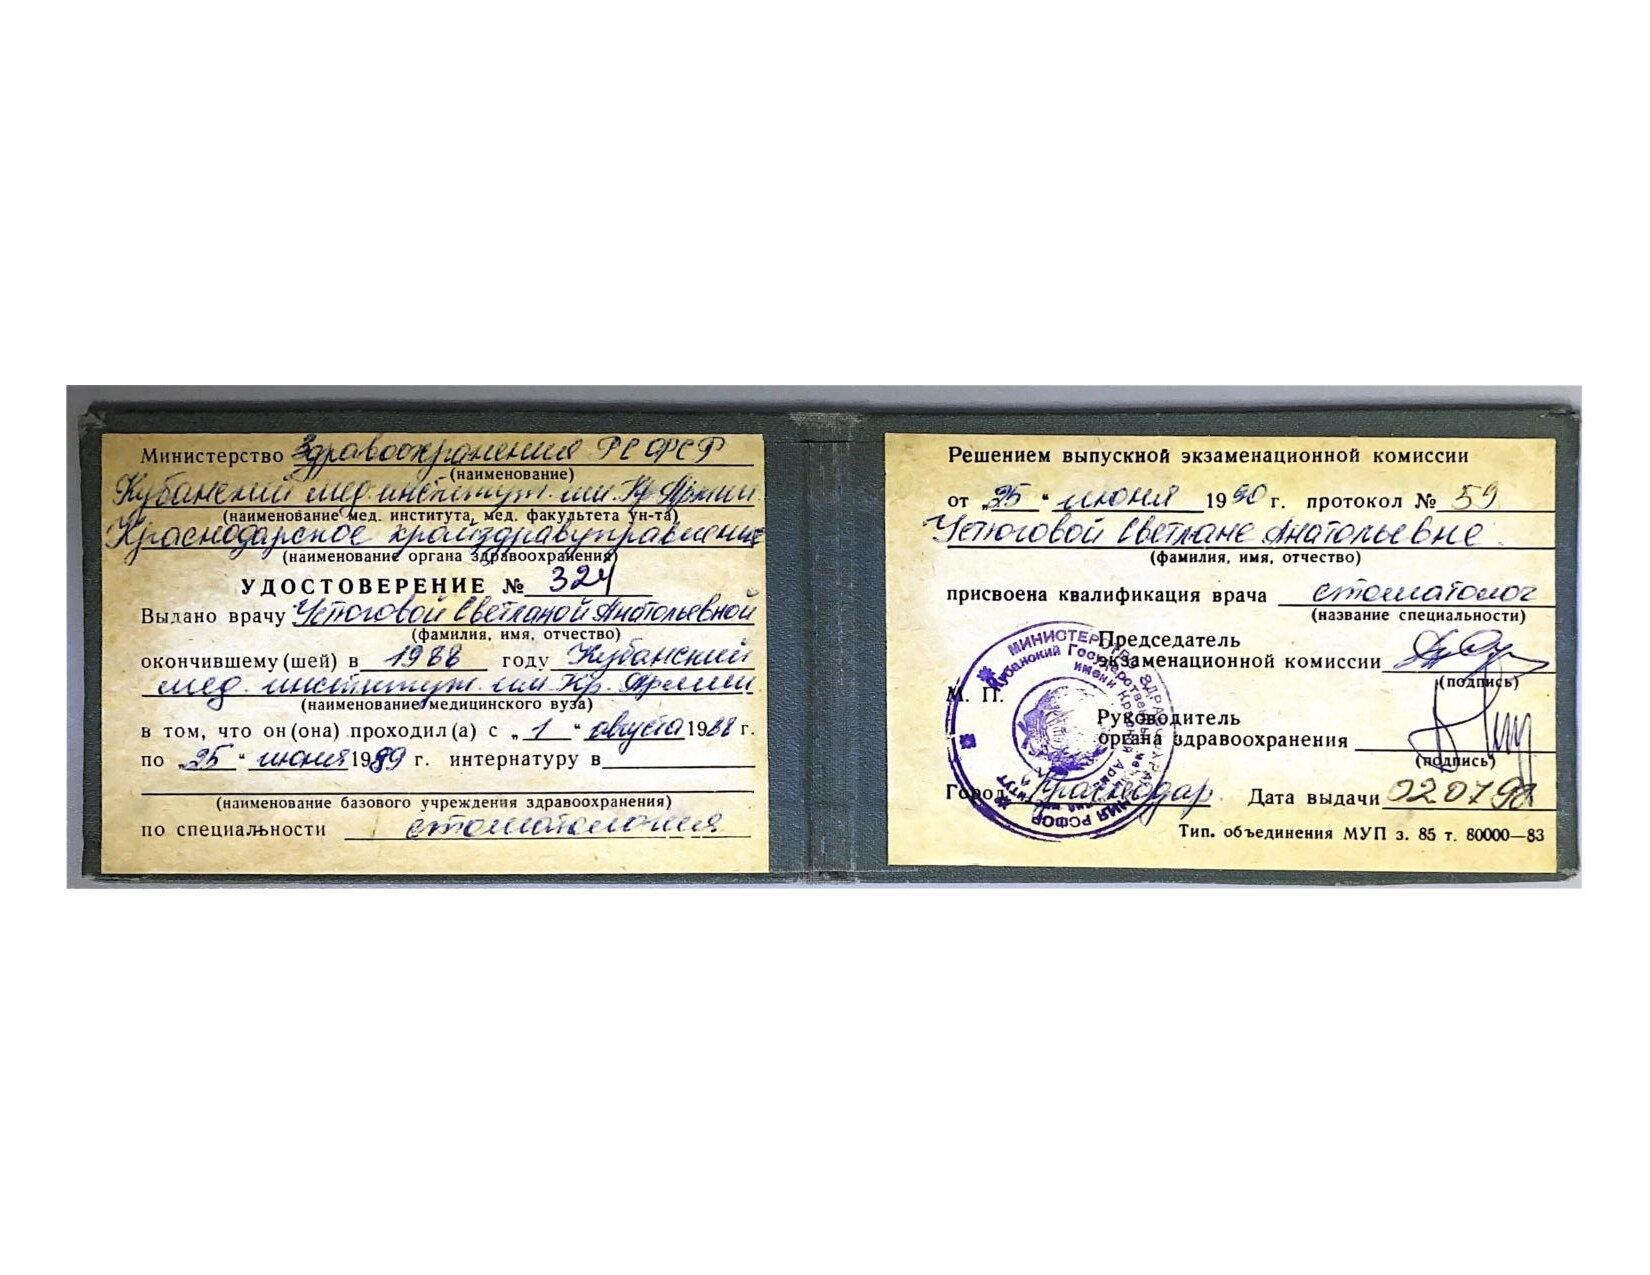 Министерство Здравоохранения РСФСР
(наименование)
Кубанский мед. институт им. Кр. Армии
(наименование мед. института, мед. факультета ун-та)
Краснодарское крайздравуправление
(наименование органа здравоохранения)
УДОСТОВЕРЕНИЕ № 324
Выдано врачу Устюговой Светланой Анатольевной
(фамилия, имя, отчество)
окончившему(шей) в 1988 году Кубанский
мед. институт им. Кр. Армии
(наименование медицинского вуза)
в том, что он(она) проходил(а) с „1“ августа 1988 г.
по „25“ июня 1989 г. интернатуру в
(наименование базового учреждения здравоохранения)
по специальности стоматология
Решением выпускной экзаменационной комиссии
от „25“ июня 1990 г. протокол № 59
Устюговой Светлане Анатольевне
(фамилия, имя, отчество)
присвоена квалификация врача стоматолог
(название специальности)
Председатель
экзаменационной комиссии
(подпись)
М. П.
Руководитель
органа здравоохранения
(подпись)
Город Краснодар Дата выдачи 02 07 90
Тип. объединения МУП з. 85 т. 80000—83
МИНИСТЕРСТВО ЗДРАВООХРАНЕНИЯ РСФСР
Кубанский Государственный
имени Красной Армии